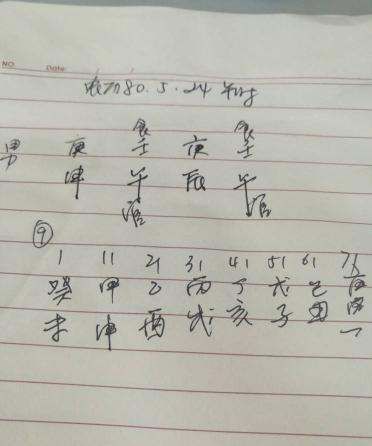 NO. Date:
农历80.5.24 午时
食 食
男 庚 壬 庚 壬
申 午 辰 午
官 官
⑨
1 11 21 31 41 51 61
癸 甲 乙 丙 丁 戊 己
未 申 酉 戌 亥 子 丑